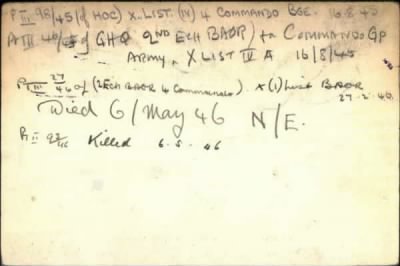 P III 98/45 (of HOC) X LIST. (IV) 4 COMMANDO BGE. 16 8 45
A III 40/45 of GHQ 2ND ECH BAOR) to COMMANDO GP
ARMY. X LIST IV A 16/8/45
P III 27/46 of (2ECH BAOR 4 Commando). X(1) List BAOR
27.2.46
Died 6/May 46 N/E.
Pt II 92/46 Killed 6.5.46